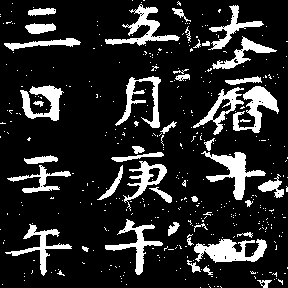 大曆十四
五月庚午
三日壬午